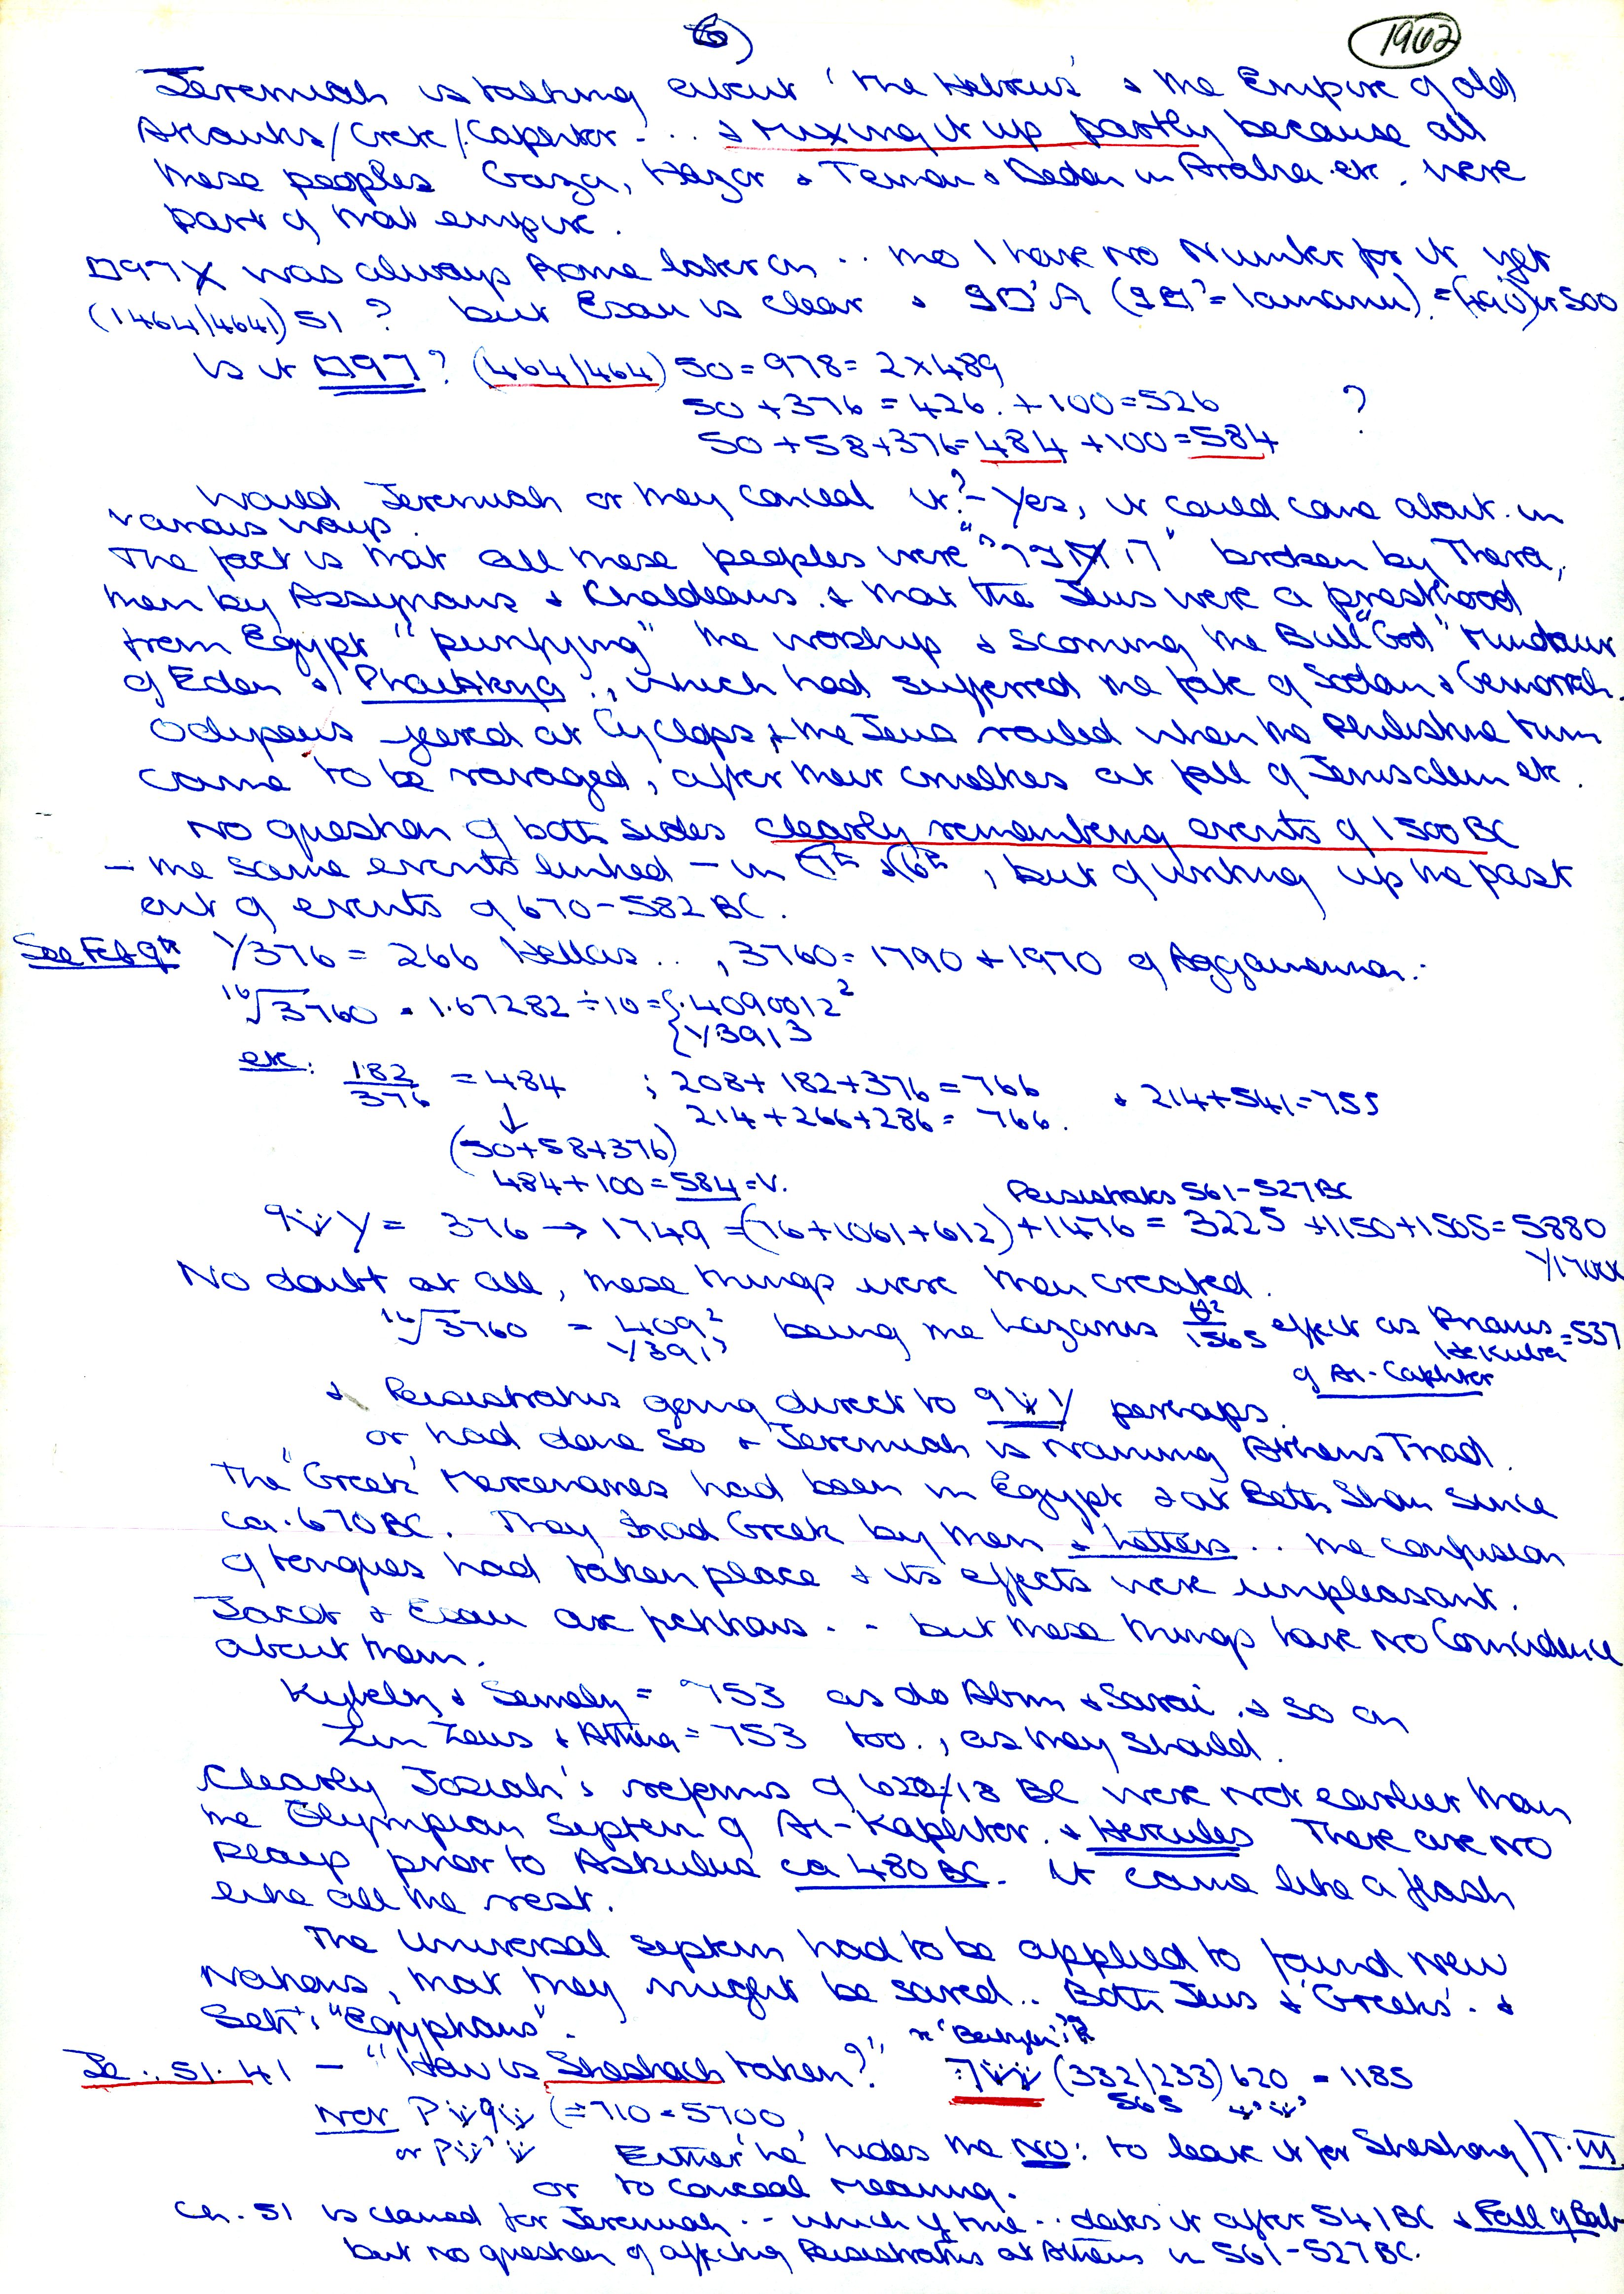 6)
1962
Jeremiah is talking about 'the Hebrews' & the Empire of old
Atlantis/Crete/Caphtor... & mixing it up partly because all
these peoples Gaza, Hazor & Teman & Dedan in Arabia etc. were
part of that empire.
was always Rome later on .. tho I have no Number for it yet
(1464/4641) 51 ? but Esau is clear & = (490) or 500
Is it ? (464/464) 50 = 978 = 2 x 489
50 + 376 = 426. + 100 = 526 ?
50 + 58 + 376 = 484 + 100 = 584
Would Jeremiah or they conceal it? - Yes, it could come about in
various ways.
The fact is that all these peoples were broken by Thera,
then by Assyrians & Chaldeans. & that the Jews were a priesthood
from Egypt "purifying" the worship & scorning the Bull "God" Minotaur
of Eden & , which had suffered the fate of Sodom & Gomorrah.
Odysseus jeered at Cyclops, & the Jews railed when the Philistine turn
came to be ravaged, after their cruelties at fall of Jerusalem etc.
No question of both sides clearly remembering events of 1500 BC
- the same events linked - in 7th & 6th, but of writing up the past
out of events of 670-582 BC.
See Feb 9th 1/376 = 266 Hellas .., 3760 = 1790 + 1970 of Agganemnon.
16√3760 = 1.67282 ÷ 10 = {.4090012²
{1/3913
etc: 182/376 = 484 ; 208 + 182 + 376 = 766 & 214 + 541 = 755
↓ 214 + 266 + 286 = 766.
(50+58+376)
484 + 100 = 584 = V.
Peisistratos 561-527 BC
= 376 → 1749 = (76+1061+612) + 1476 = 3225 + 1150 + 1505 = 5880
No doubt at all, these things were then created.
16√3760 = 409² being the Lazarus 1565 effect as Priamus = 537
1/3913 Hekuba
of Ai-Caphtor
& Peisistratus going direct to perhaps.
or had done so & Jeremiah is naming Athens Triad.
The 'Greek' Mercenaries had been in Egypt & at Beth Shan since
ca. 670 BC. They had Greek by then & letters .. the confusion
of tongues had taken place & its effects were unpleasant.
Jacob & Esau are .. but these things have no Coincidence
about them.
Kybely & Semely = 753 as do Abrm & Sarai, & so on
Zin Zeus & Athena = 753 too., as they should.
Clearly Josiah's reforms of 622/18 BC were not earlier than
the Olympian System of Ai-Kaphtor. & Hercules There are no
plays prior to Askulus ca 480 BC. It came like a flash
like all the rest.
The Universal system had to be applied to found new
Nations, that they might be saved.. Both Jews & 'Greeks'. &
Self: "Egyptians".
Je.. 51.41 - "How is Sheshach taken?" (332/233) 620 = 1185
565
not (= 710 = 5700
or Either 'he' hides the NO: to leave it for Sheshong/T.III
or to conceal meaning.
Ch. 51 is claimed for Jeremiah .. which if true .. dates it after 541 BC & Fall of Bab
but no question of affecting Peisistratus at Athens in 561-527 BC.